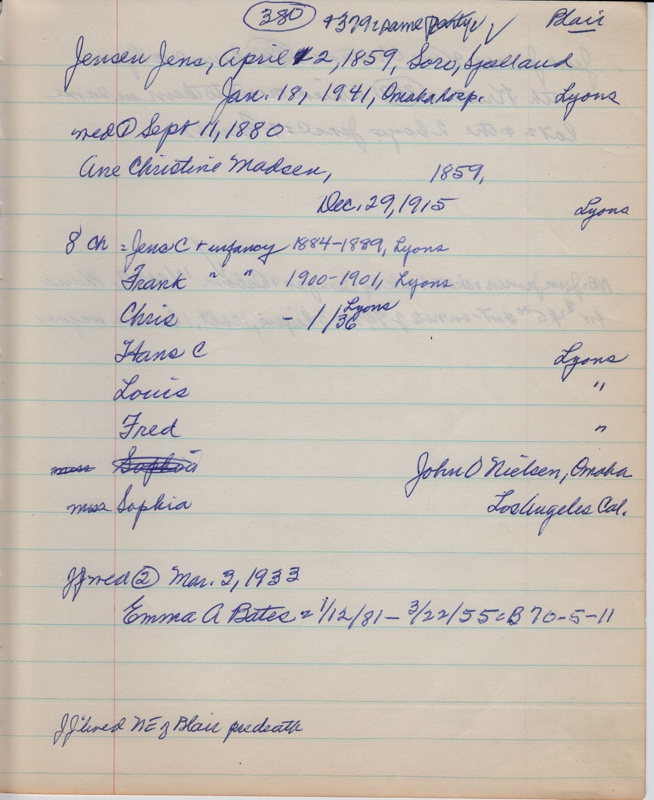 380 + 379 = same party ✓ Blair
Jensen Jens, April 2, 1859, Soro, Sjalland
Jan. 18, 1941, Omaha hosp. Lyons
wed ① Sept 11, 1880
Ane Christine Madsen, 1859,
Dec. 29, 1915 Lyons
8 ch = Jens C + infancy 1884-1889, Lyons
Frank " " 1900-1901, Lyons
Chris - 1/36 Lyons
Hans C Lyons
Louis "
Fred "
John O Nielsen, Omaha
miss Sophia Los Angeles Cal.
JJ wed ② Mar. 3, 1933
Emma A Bates = 1/12/81 - 3/22/55 cB 70-5-11
JJ lived NE of Blair predeath